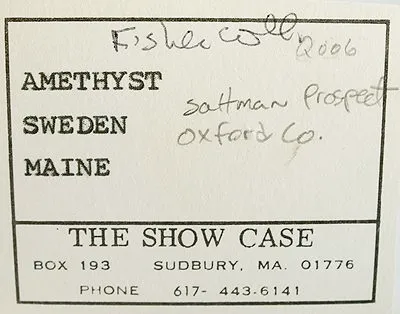 Fisher coll 2006
AMETHYST
Saltman Prospect
SWEDEN
Oxford Co.
MAINE
THE SHOW CASE
BOX 193 SUDBURY, MA. 01776
PHONE 617- 443-6141